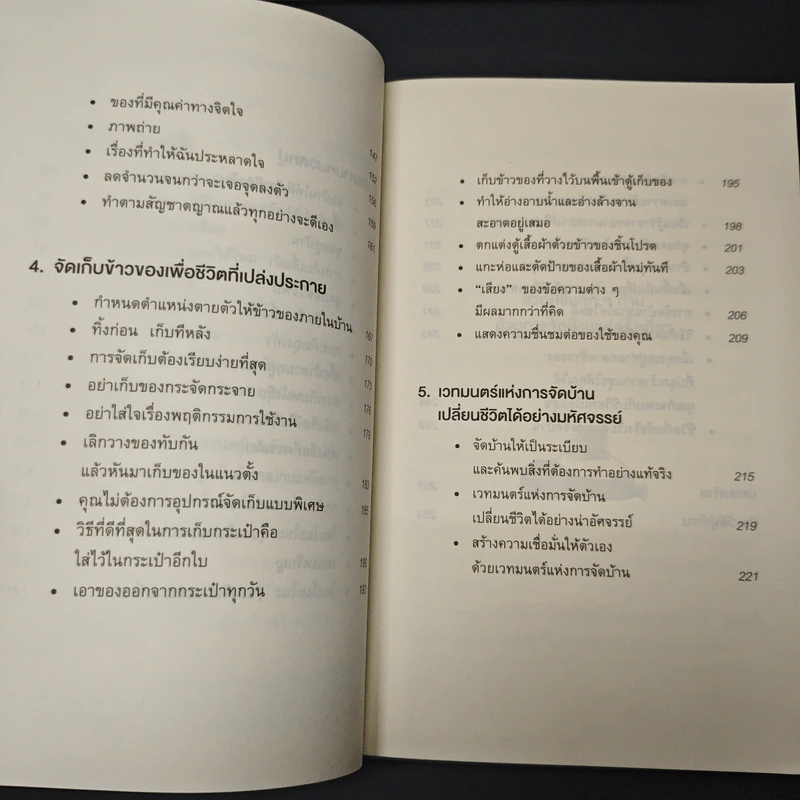 • ของที่มีคุณค่าทางจิตใจ 147
• ภาพถ่าย 152
• เรื่องที่ทำให้ฉันประหลาดใจ 156
• ลดจำนวนจนกว่าจะเจอจุดลงตัว 159
• ทำตามสัญชาตญาณแล้วทุกอย่างจะดีเอง 161
4. จัดเก็บข้าวของเพื่อชีวิตที่เปล่งประกาย
• กำหนดตำแหน่งตายตัวให้ข้าวของภายในบ้าน 167
• ทิ้งก่อน เก็บทีหลัง 170
• การจัดเก็บต้องเรียบง่ายที่สุด 173
• อย่าเก็บของกระจัดกระจาย 176
• อย่าใส่ใจเรื่องพฤติกรรมการใช้งาน 179
• เลิกวางของทับกัน
แล้วหันมาเก็บของในแนวตั้ง 183
• คุณไม่ต้องการอุปกรณ์จัดเก็บแบบพิเศษ 185
• วิธีที่ดีที่สุดในการเก็บกระเป๋าคือ
ใส่ไว้ในกระเป๋าอีกใบ 190
• เอาของออกจากกระเป๋าทุกวัน 193
• เก็บข้าวของที่วางไว้บนพื้นเข้าตู้เก็บของ 195
• ทำให้อ่างอาบน้ำและอ่างล้างจาน
สะอาดอยู่เสมอ 198
• ตกแต่งตู้เสื้อผ้าด้วยข้าวของชิ้นโปรด 201
• แกะห่อและตัดป้ายของเสื้อผ้าใหม่ทันที 203
• “เสียง” ของข้อความต่าง ๆ
มีผลมากกว่าที่คิด 206
• แสดงความชื่นชมต่อของใช้ของคุณ 209
5. เวทมนตร์แห่งการจัดบ้าน
เปลี่ยนชีวิตได้อย่างมหัศจรรย์
• จัดบ้านให้เป็นระเบียบ
และค้นพบสิ่งที่ต้องการทำอย่างแท้จริง 215
• เวทมนตร์แห่งการจัดบ้าน
เปลี่ยนชีวิตได้อย่างน่าอัศจรรย์ 219
• สร้างความเชื่อมั่นให้ตัวเอง
ด้วยเวทมนตร์แห่งการจัดบ้าน 221